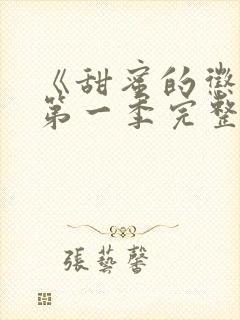 《甜蜜的懲
第一季完整
張藝馨